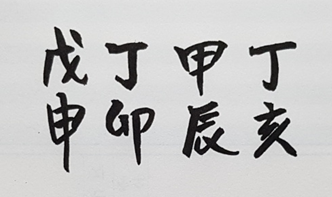 戊丁甲丁
申卯辰亥